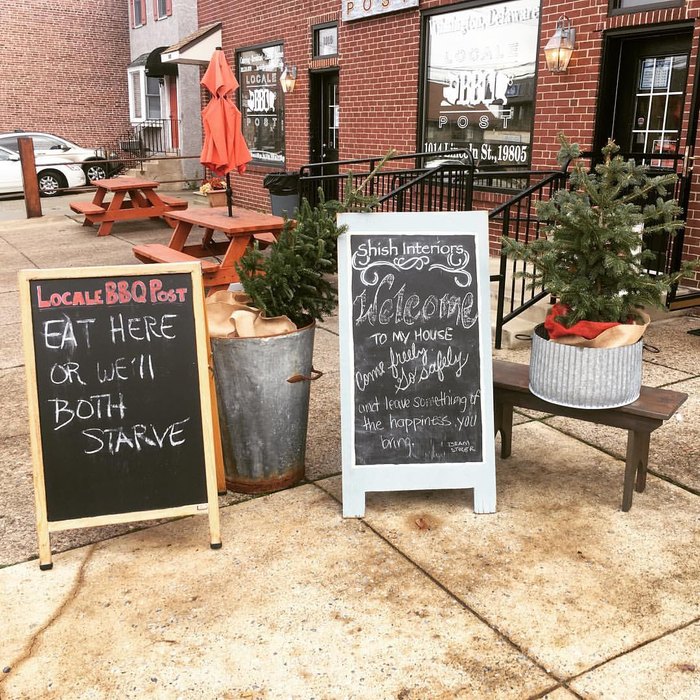 POST
LOCALE
BBQ
POST
Wilmington, Delaware
LOCALE
BBQ
POST
1014 Lincoln St., 19805
LOCALE BBQ POST
EAT HERE
OR WE'll
BOTH
STARVE
Shish Interiors
Welcome
TO MY HOUSE
Come freely
Go Safely
and leave something of
the happiness you
bring.
BRAM
STOKER